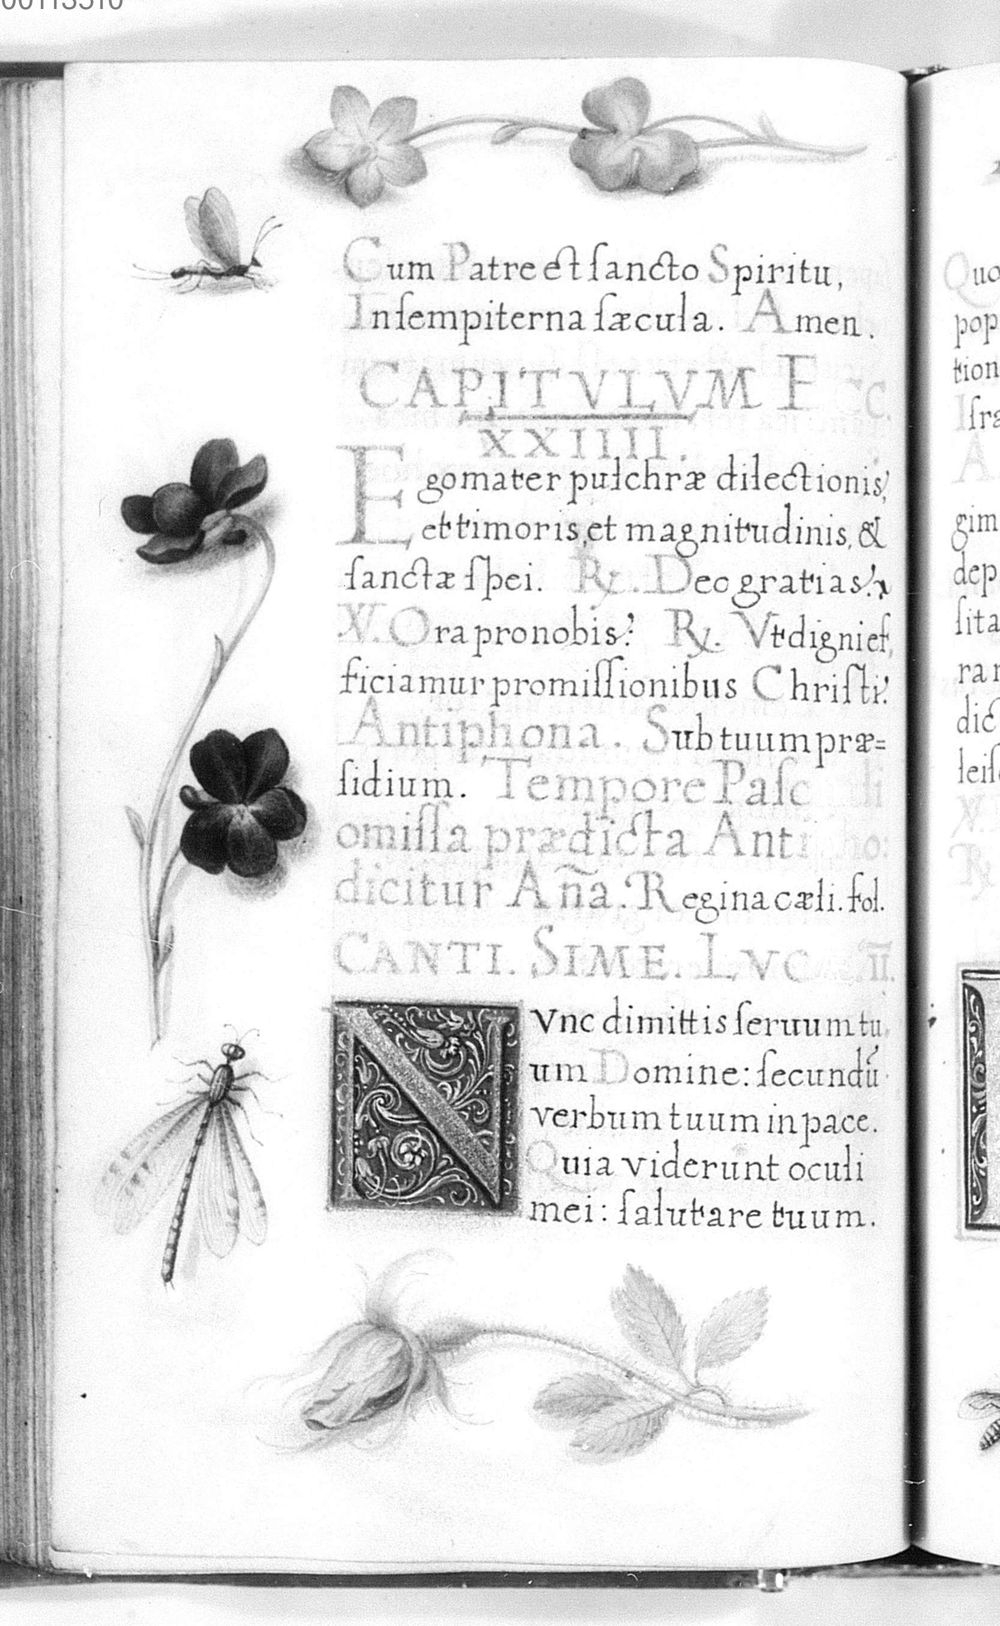 00113510
Cum Patre et ſancto Spiritu,
In ſempiterna ſæcula. Amen.
CAPITVLVM E CC.
XXIIII.
Ego mater pulchræ dilectionis,
et timoris, et magnitudinis, &
ſanctæ ſpei. ℟. Deo gratias.
℣. Ora pro nobis. ℟. Vt digni ef,
ficiamur promiſſionibus Chriſti.
Antiphona. Sub tuum præ=
ſidium. Tempore Paſc li
omiſſa prædicta Anti ho:
dicitur Aña. Regina cæli. fol.
CANTI. SIME. LVC II.
NVnc dimittis ſeruum tu
um Domine: ſecundũ
verbum tuum in pace.
Quia viderunt oculi
mei: ſalutare tuum.
Quo
pop
tion
Iſra
A
gim
dep
ſita
ra
dic
leiſ
℣
℟